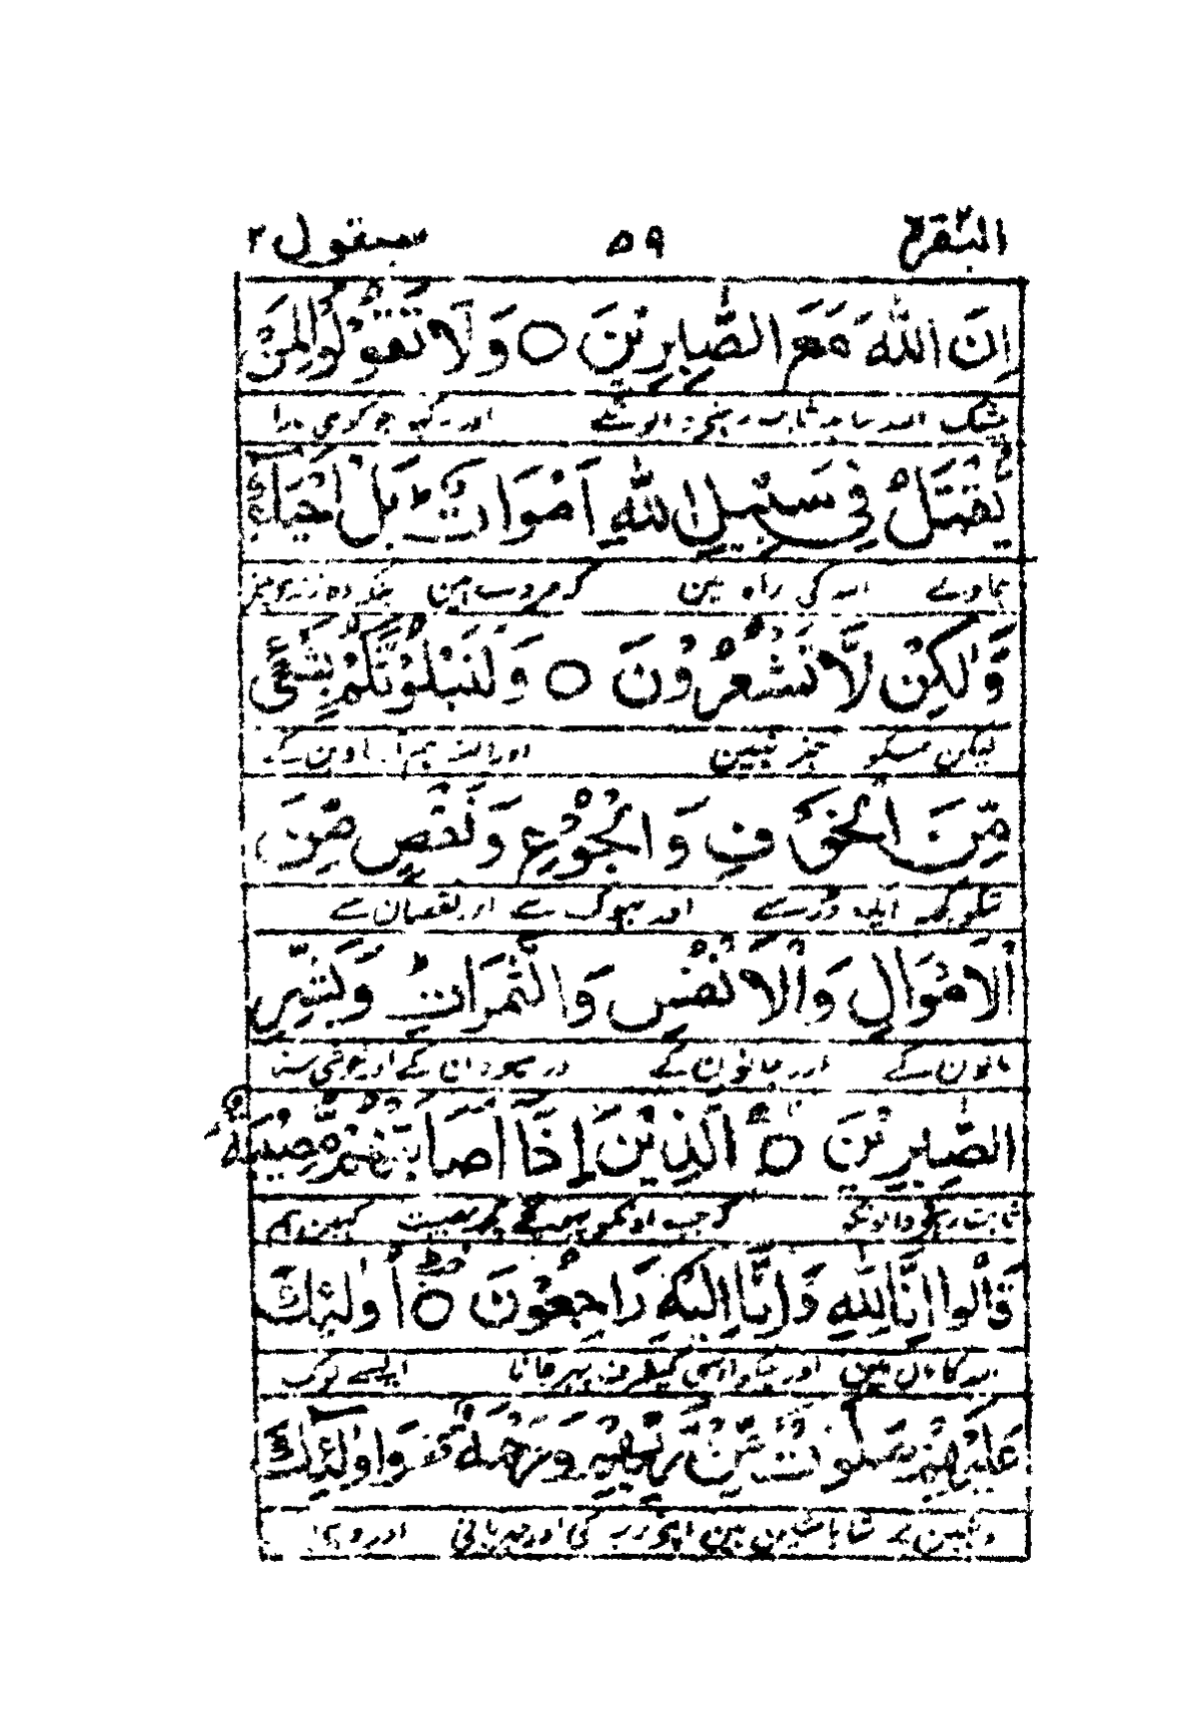 البقرة ٢ ٥٩ سیقول ٢
اِنَّ اللّٰهَ مَعَ الصّٰبِرِيْنَ ○ وَلَا تَقُوْلُوْا لِمَنْ
اللہ ساتھ ثابت اور کہو جو کوئی مارا
يُّقْتَلُ فِيْ سَبِيْلِ اللّٰهِ اَمْوَاتٌ ؕ بَلْ اَحْيَآءٌ
جاوے اللہ کی راہ مین کہ مردے ہین بلکہ وہ زندی ہین
وَّلٰكِنْ لَّا تَشْعُرُوْنَ ○ وَلَنَبْلُوَنَّكُمْ بِشَيْءٍ
لیکن تمکو خبر نہین اور البتہ ہم
مِّنَ الْخَوْفِ وَالْجُوْعِ وَنَقْصٍ مِّنَ
تمکو کچھہ ایک ڈر سے اور بہوک سے اور نقصان سے
الْاَمْوَالِ وَالْاَنْفُسِ وَالثَّمَرٰتِ ؕ وَبَشِّرِ
مالون کے اور جانون کے اور میوون کے اور خوشی سنا
الصّٰبِرِيْنَ ○ الَّذِيْنَ اِذَآ اَصَابَتْهُمْ مُّصِيْبَةٌ
ثابت رہنے والونکو کہ جب اونکو پہنچے کچھہ مصیبت کہین ہم
قَالُوْٓا اِنَّا لِلّٰهِ وَاِنَّآ اِلَيْهِ رٰجِعُوْنَ ○ اُولٰٓئِكَ
اللہ کا مال ہین اور ہمکو اوسی کیطرف پہر جانا ایسے لوگ
عَلَيْهِمْ صَلَوٰتٌ مِّنْ رَّبِّهِمْ وَرَحْمَةٌ وَاُولٰٓئِكَ
شاباشین ہین اپنے رب کی اور مہربانی اور وہی